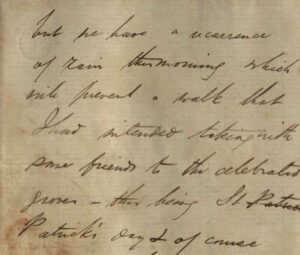 but we have a ucarrence
of rain this morning which
will prevent a walk that
I had intended taking with
some friends to the celebrated
groves – this being St Patric
Patrick's day & of course